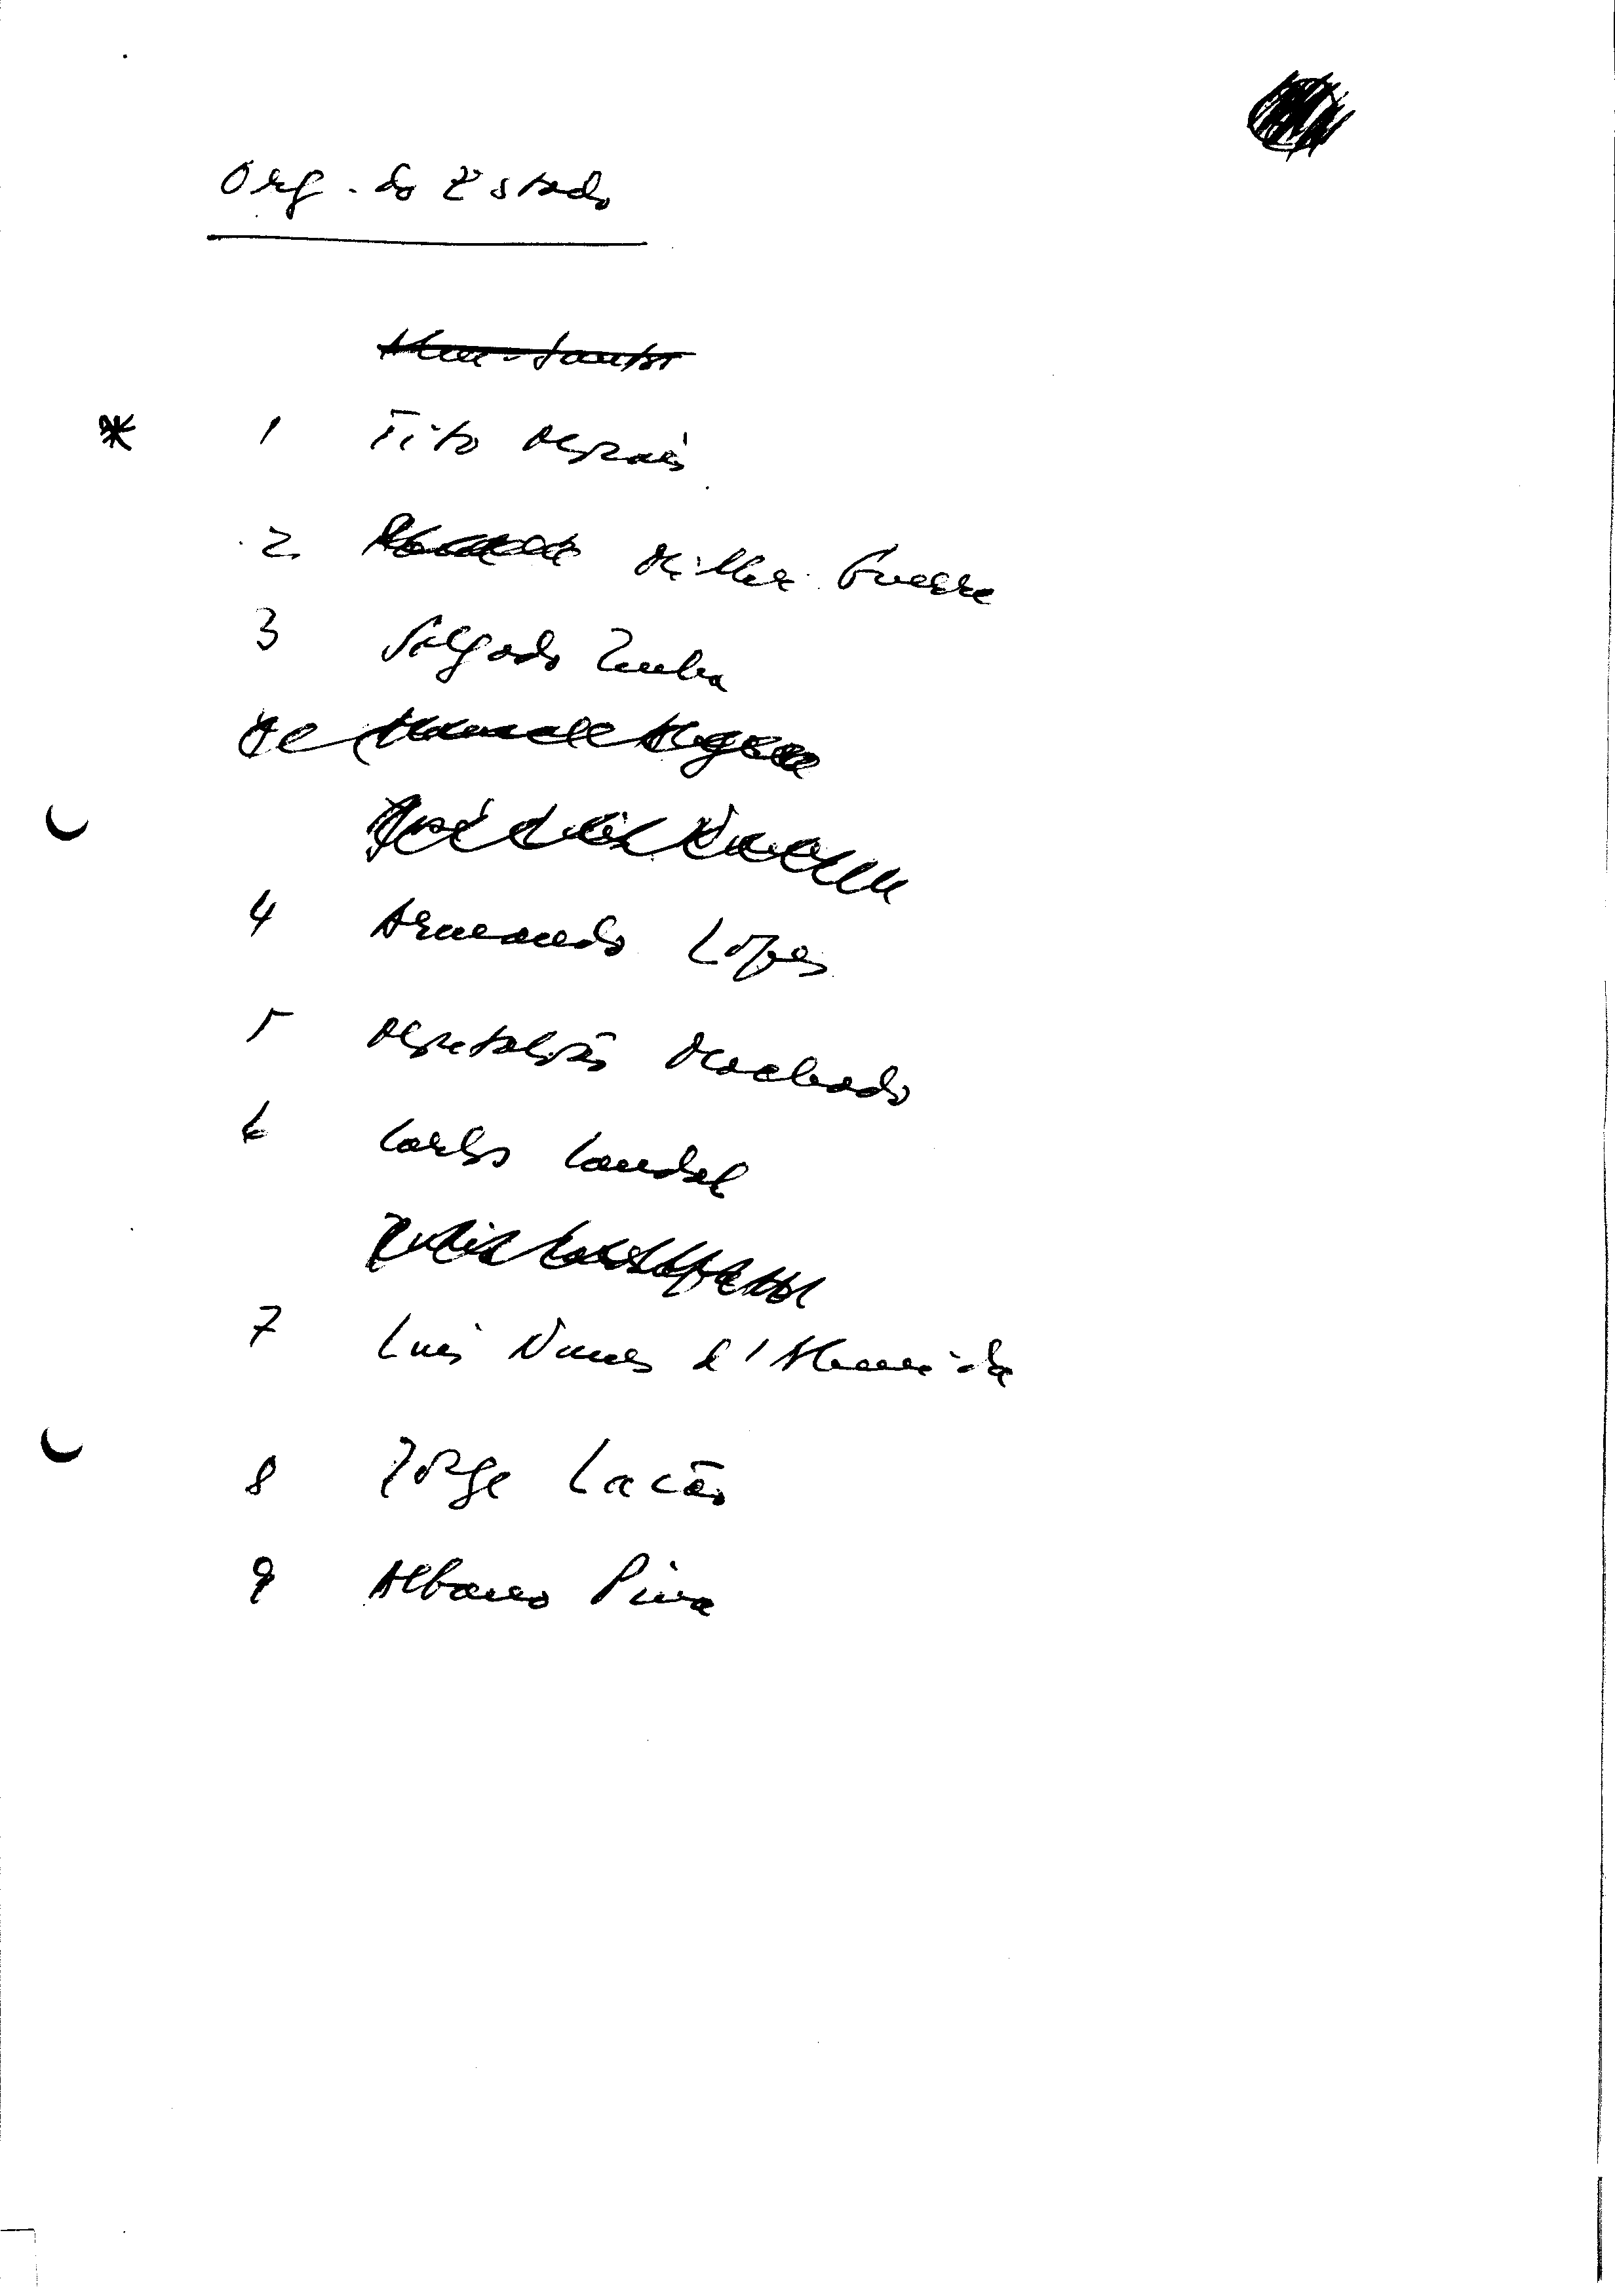 Org. do Estado
* 1 Tito Morais
2 Miller Guerra
3 Salgado Zenha
4 Armando Lopes
5 Magalhães Machado
6 Carlos Candal
7 Luis Nunes d'Almeida
8 Jorge Lacão
9 Albano Pina